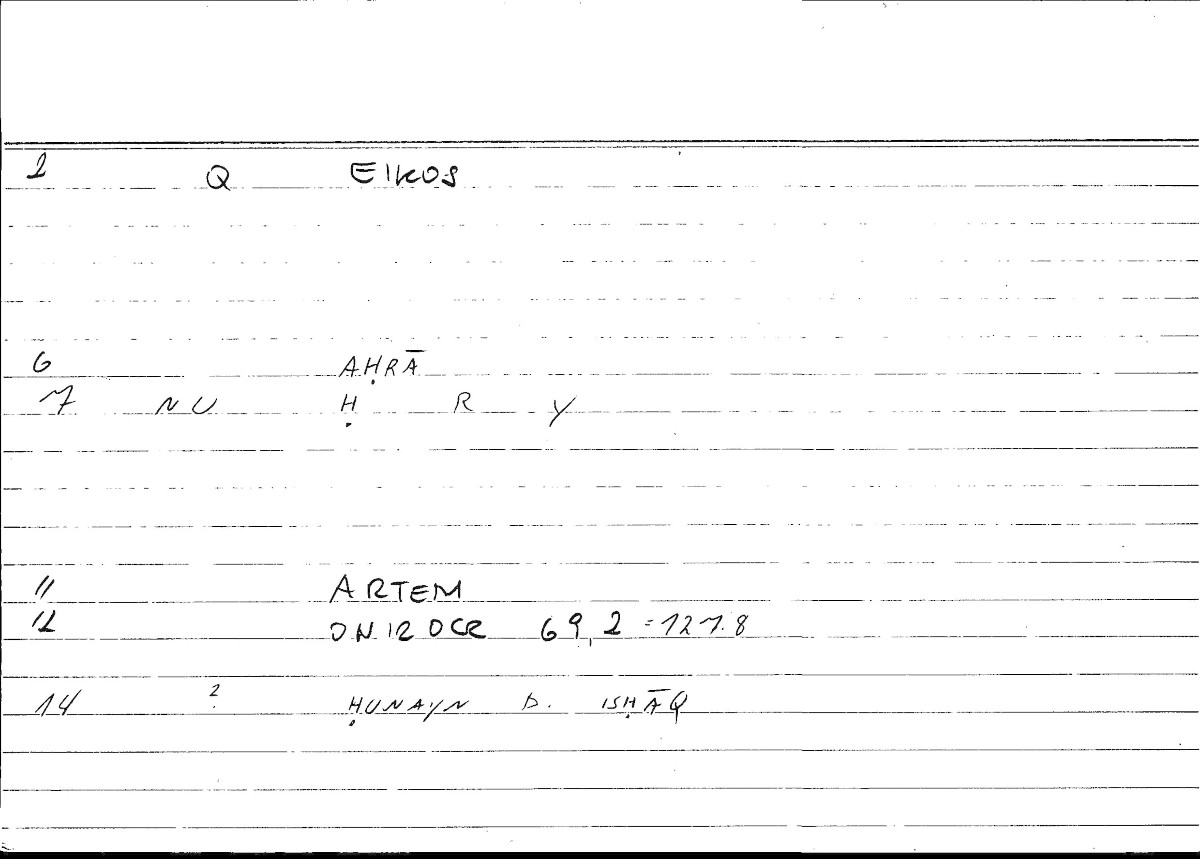 2 Q EIKOS
6 AḤRĀ
7 NU Ḥ R Y
11 ARTEM
12 ONIROCR 69,2 = 127.8
14 2 ḤUNAYN B. ISḤĀQ